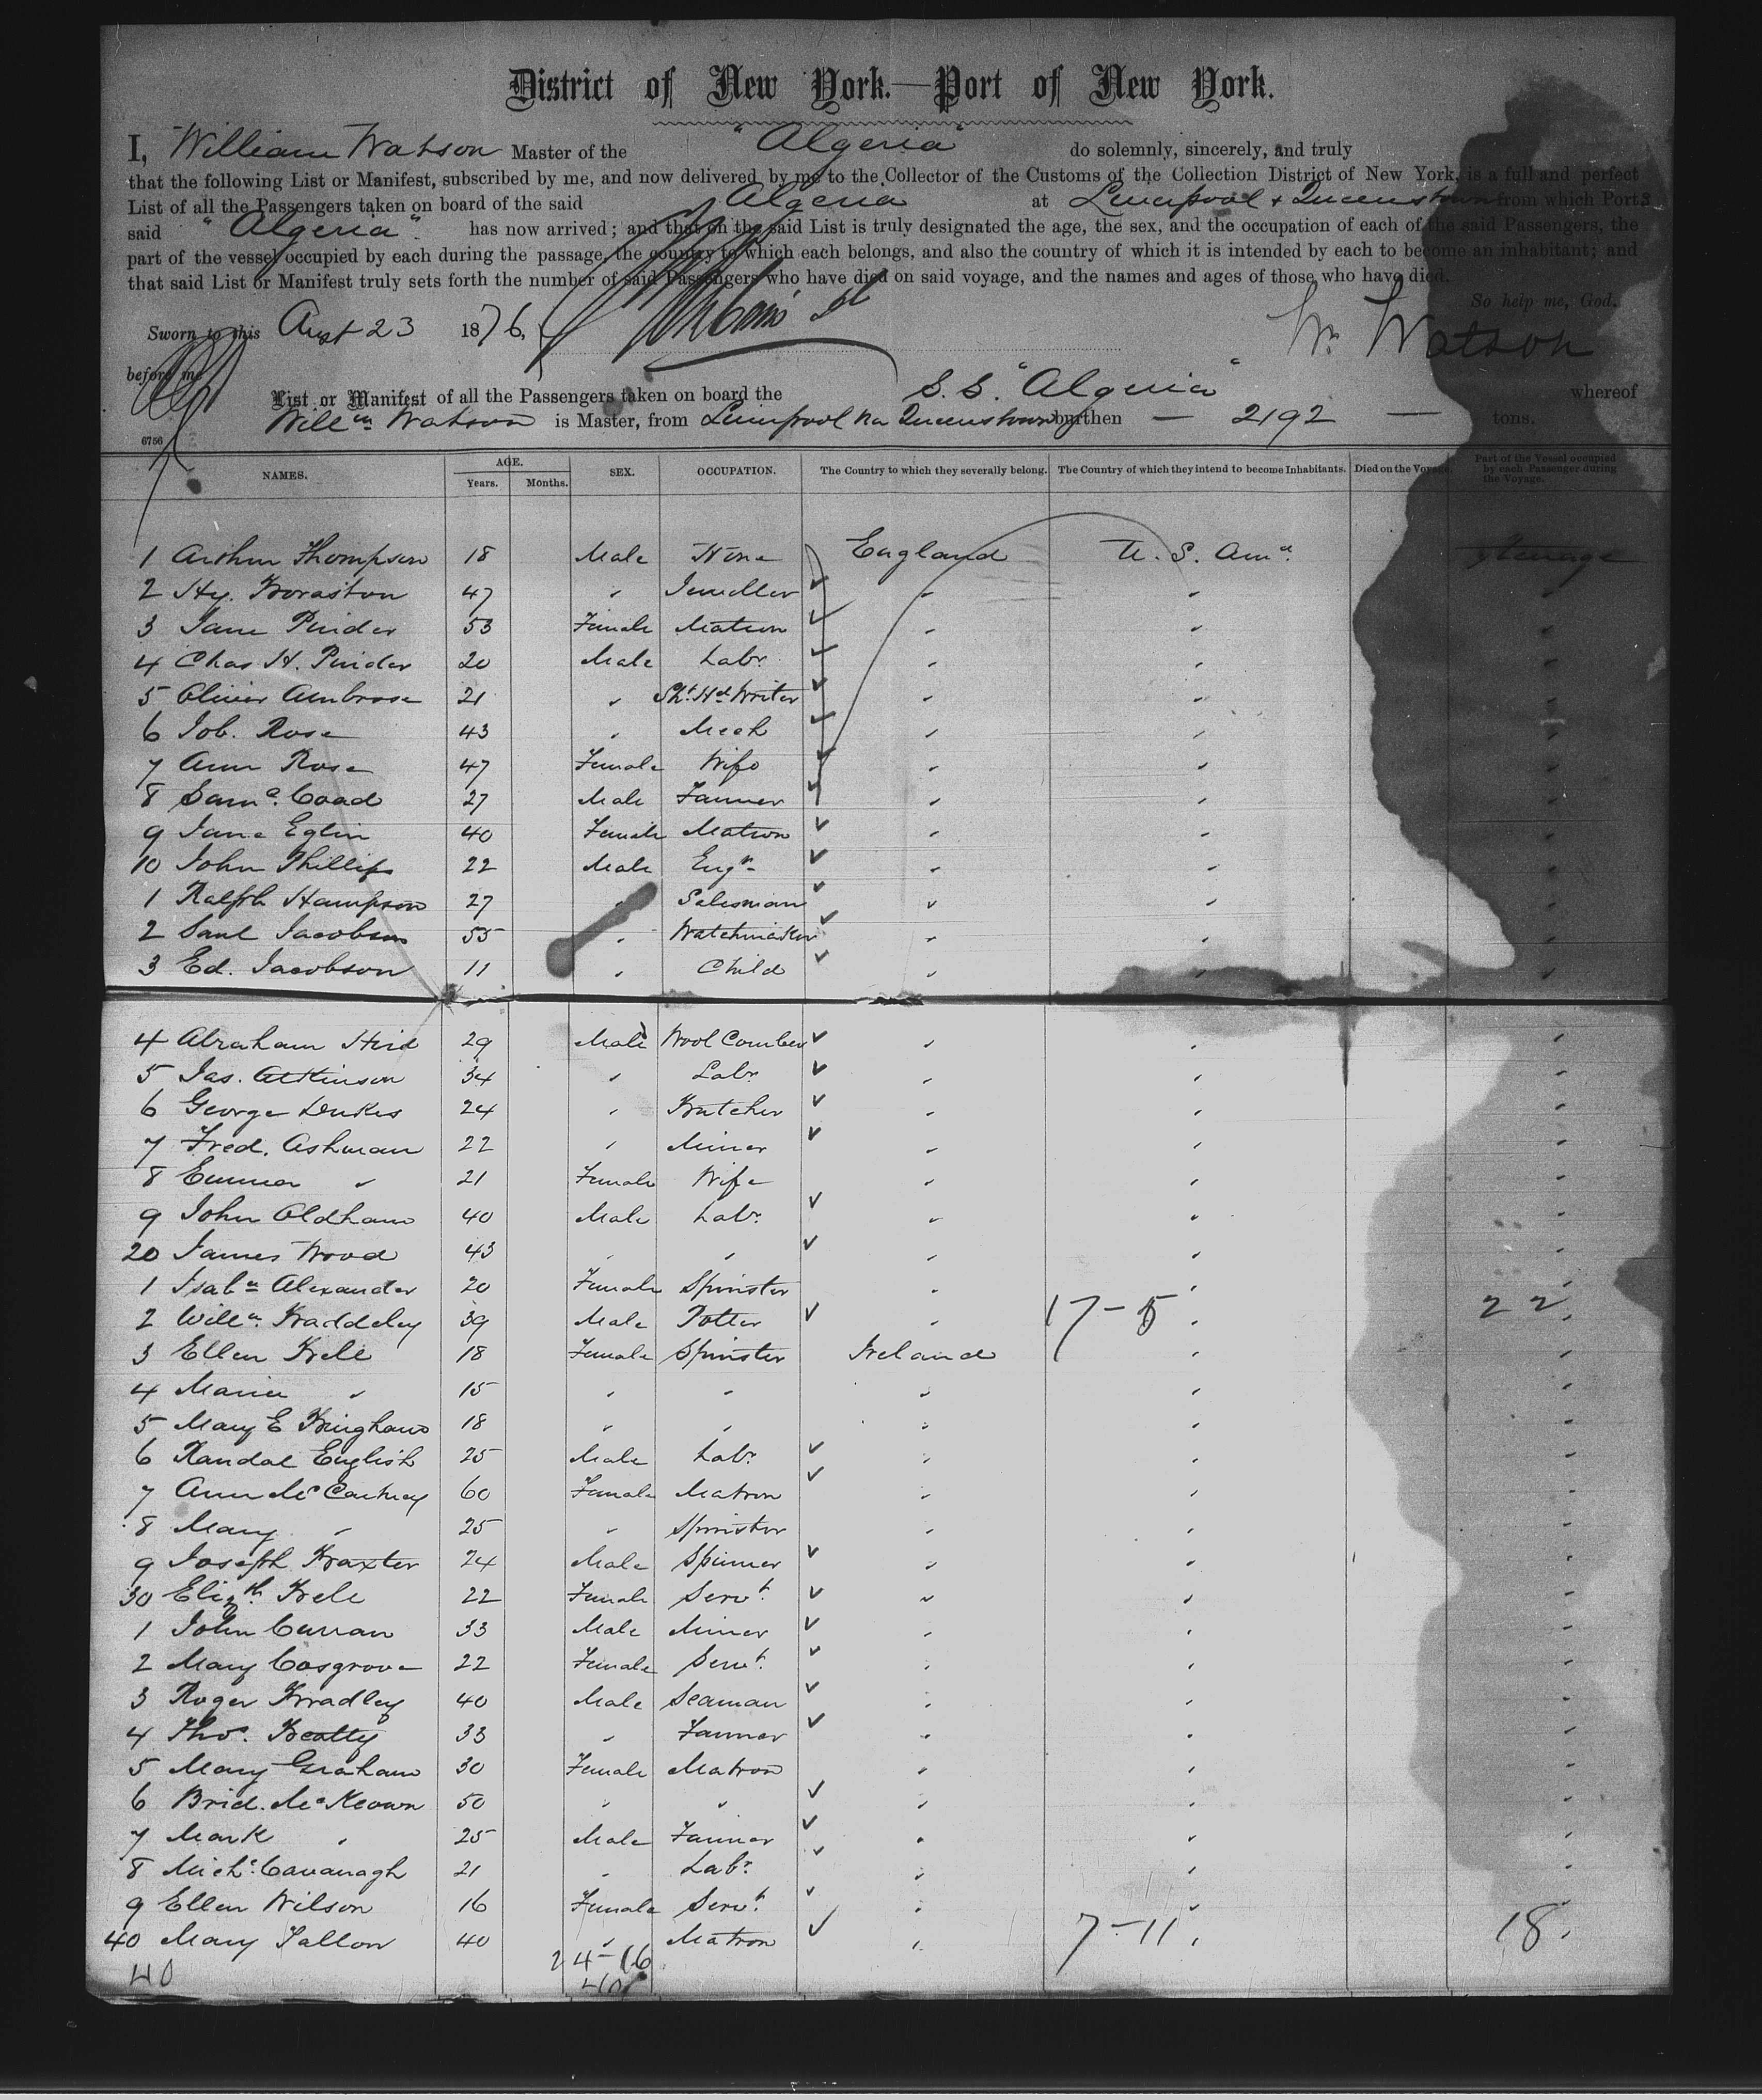 District of New York.—Port of New York.
I, William Watson Master of the "Algeria" do solemnly, sincerely, and truly
that the following List or Manifest, subscribed by me, and now delivered by me to the Collector of the Customs of the Collection District of New York, is a full and perfect
List of all the Passengers taken on board of the said Algeria at Liverpool & Queenstown from which Ports
said "Algeria" has now arrived; and that on the said List is truly designated the age, the sex, and the occupation of each of the said Passengers, the
part of the vessel occupied by each during the passage, the country to which each belongs, and also the country of which it is intended by each to become an inhabitant; and
that said List or Manifest truly sets forth the number of said Passengers who have died on said voyage, and the names and ages of those who have died.
So help me, God.
Sworn to this Augt 23 1876, Wm Watson
before me
List or Manifest of all the Passengers taken on board the S.S. "Algeria" whereof
Willm Watson is Master, from Liverpool via Queenstown burthen — 2192 — tons.
6756
NAMES. AGE. Years. Months. SEX. OCCUPATION. The Country to which they severally belong. The Country of which they intend to become Inhabitants. Died on the Voyage. Part of the Vessel occupied by each Passenger during the Voyage.
1 Arthur Thompson 18 Male None England U. S. Ama. Steerage
2 Hy. Boraston 47 " Jeweller ✓ " " "
3 Jane Pinder 53 Female Matron ✓ " " "
4 Chas H. Pinder 20 Male Labr. ✓ " " "
5 Oliver Ambrose 21 " Sht. Hd. Writer ✓ " " "
6 Job. Rose 43 " Mech ✓ " " "
7 Ann Rose 47 Female Wife ✓ " " "
8 Saml. Coad 27 Male Farmer ✓ " " "
9 Jane Eglin 40 Female Matron ✓ " " "
10 John Phillips 22 Male Engr. ✓ " " "
1 Ralph Hampson 27 " Salesman ✓ " " "
2 Saul Jacobson 55 " Watchmaker ✓ " " "
3 Ed. Jacobson 11 " Child ✓ " " "
4 Abraham Hird 29 Male Wool Comber ✓ " " "
5 Jas. Atkinson 34 " Labr. ✓ " " "
6 George Dukes 24 " Butcher ✓ " " "
7 Fred. Ashman 22 " Miner ✓ " " "
8 Emma " 21 Female Wife " " "
9 John Oldham 40 Male Labr. ✓ " " "
20 James Wood 43 " " ✓ " " "
1 Isaba Alexander 20 Female Spinster " " "
2 Willm. Baddeley 39 Male Potter ✓ " 17-5 " 22 "
3 Ellen Bell 18 Female Spinster Ireland " "
4 Maria " 15 " " " " "
5 Mary E Bingham 18 " " " " "
6 Randal English 25 Male Labr. ✓ " " "
7 Ann McCartney 60 Female Matron ✓ " " "
8 Mary " 25 " Spinster " " "
9 Joseph Baxter 24 Male Spinner ✓ " " "
30 Elizth. Bell 22 Female Servt. ✓ " " "
1 John Curran 33 Male Miner ✓ " " "
2 Mary Cosgrove 22 Female Servt. ✓ " " "
3 Roger Bradley 40 Male Seaman ✓ " " "
4 Thos. Beatty 33 " Farmer ✓ " " "
5 Mary Graham 30 Female Matron " " "
6 Brid. McKeown 50 " " ✓ " " "
7 Mark " 25 Male Farmer ✓ " " "
8 Michl. Cavanagh 21 " Labr. ✓ " " "
9 Ellen Wilson 16 Female Servt. ✓ " " "
40 Mary Fallon 40 " Matron ✓ " 7-11 " 18 "
40 24-16
40